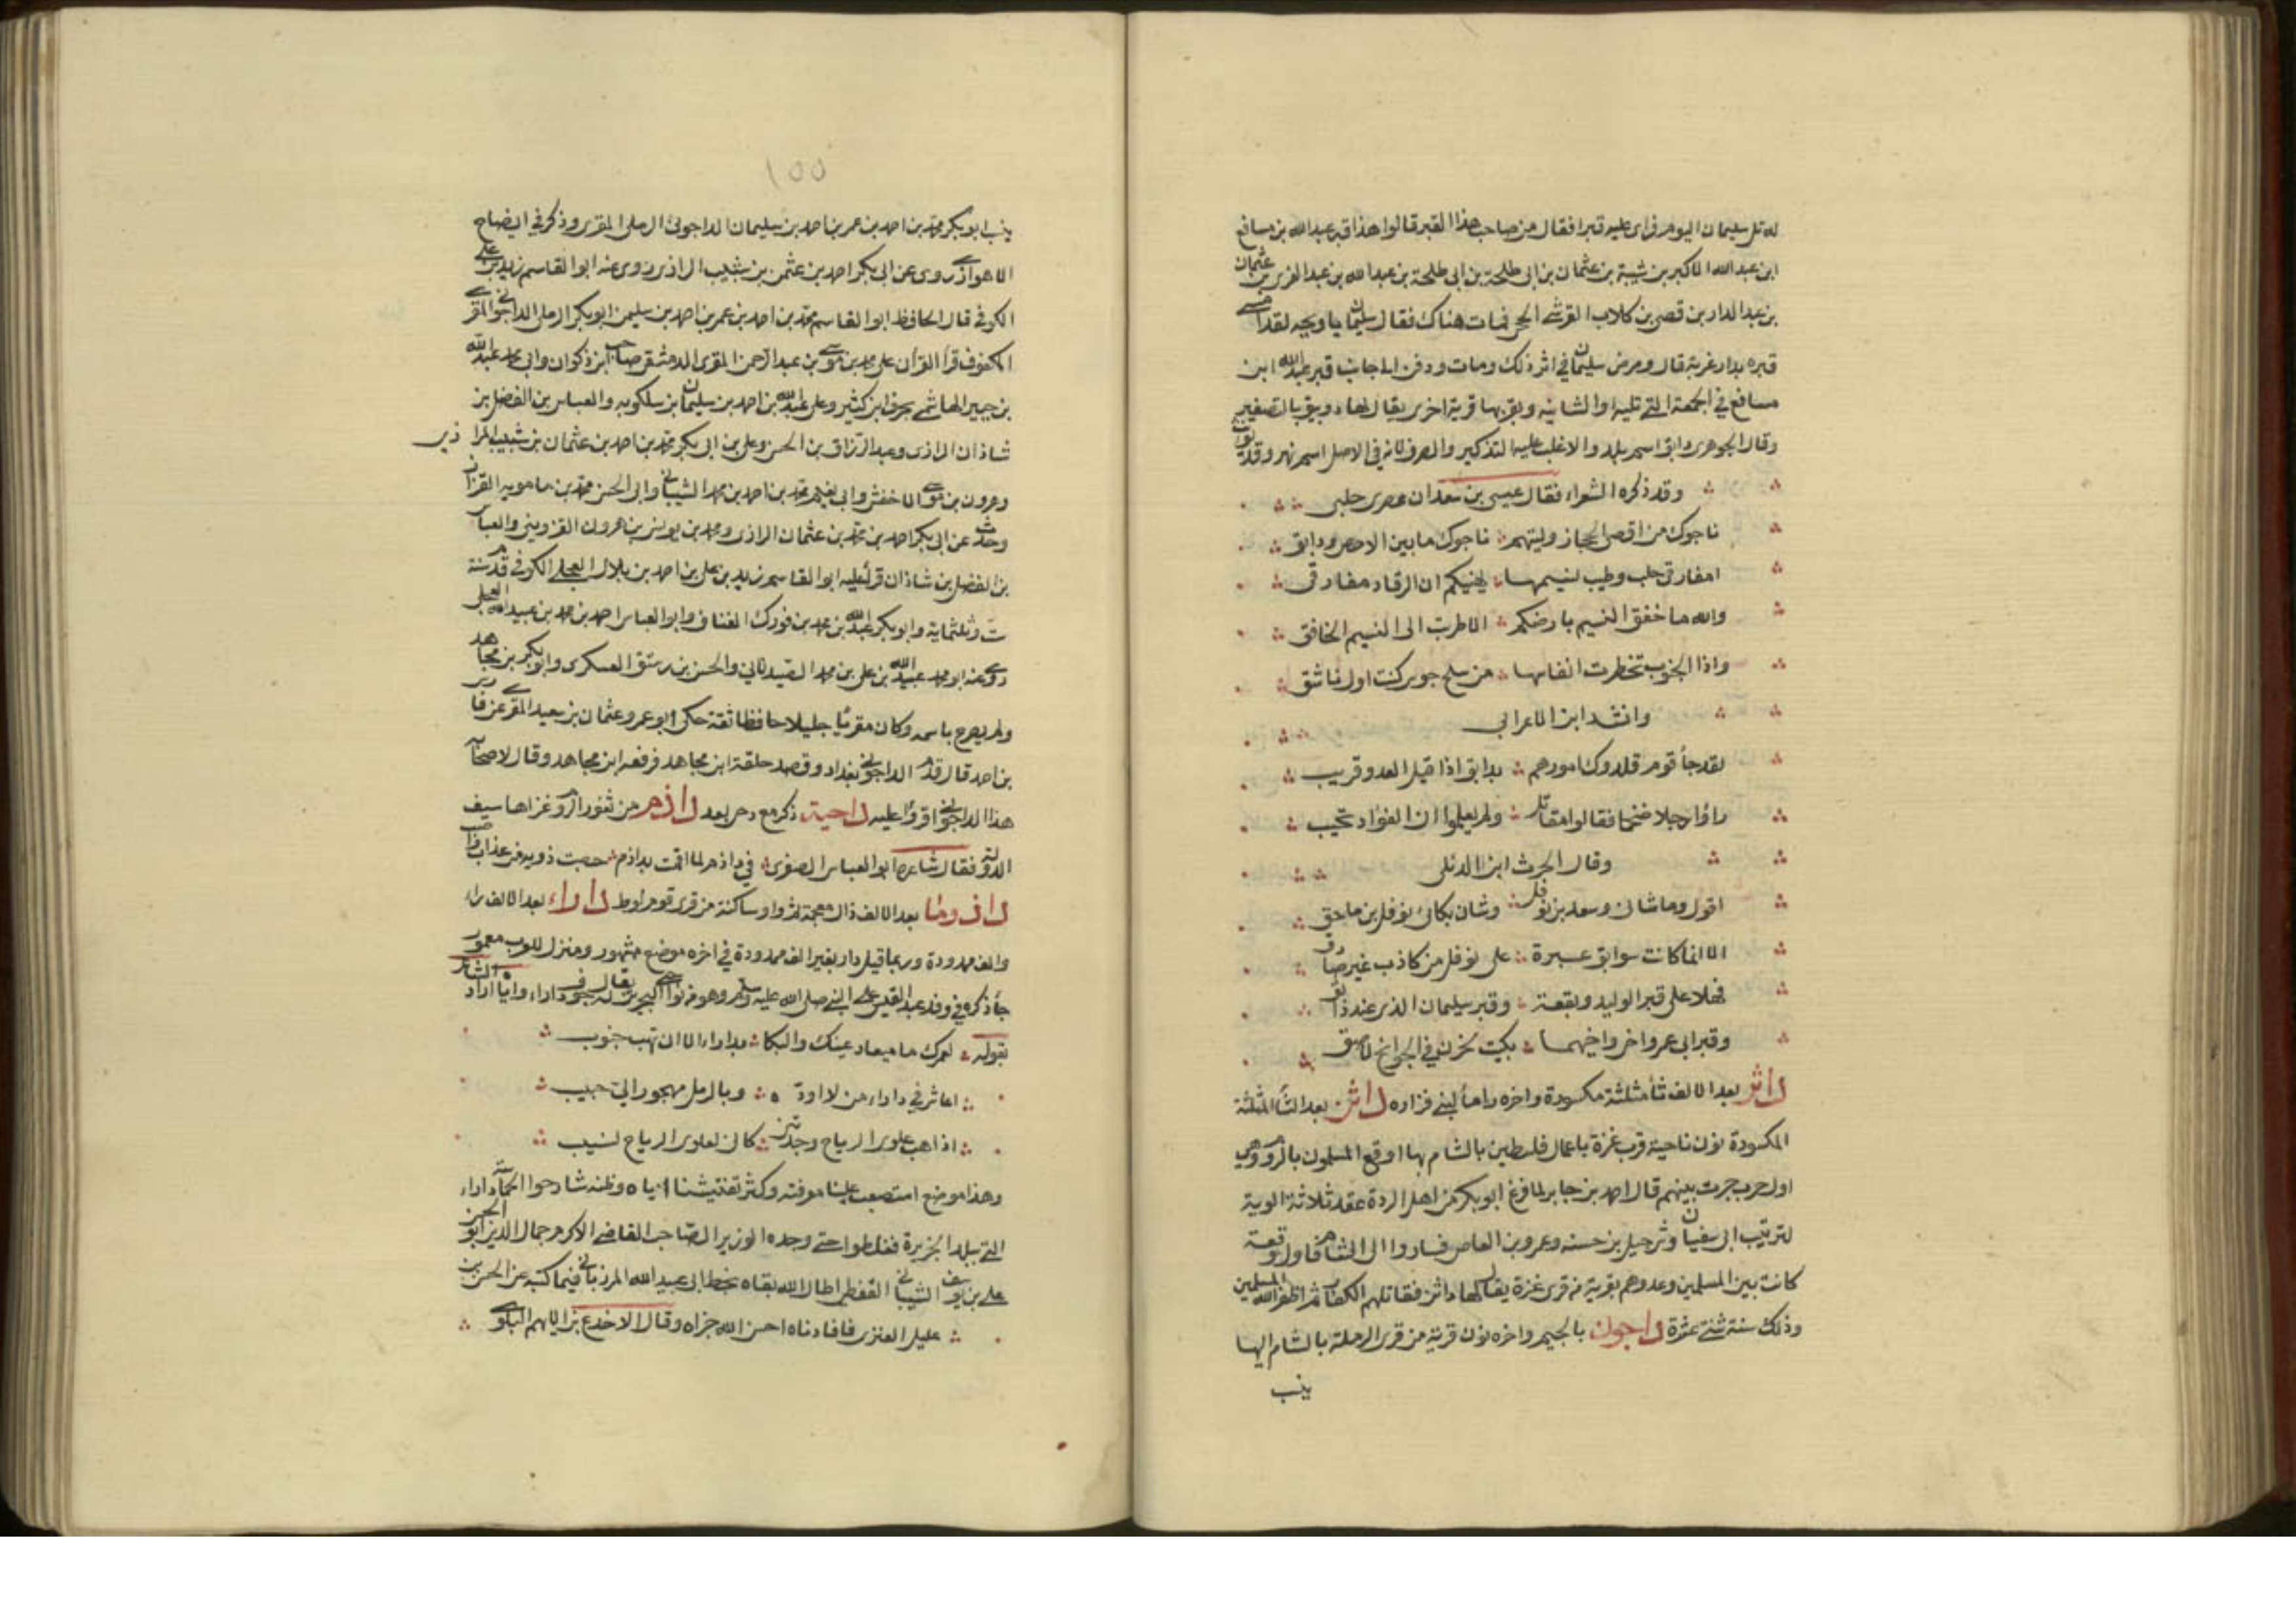 له تل سليمان اليوم فراى عليه قبرا فقال من صاحب هذا القبر قالوا هذا قبر عبد الله بن مسافع
ابن عبد الله الاكبر بن شيبة بن عثمان بن ابى طلحة بن ابى طلحة بن عبد الله بن عبد العزى بن عثمان
بن عبد الدار بن قصى بن كلاب القرشى الحجى فمات هناك فقال سليمان ياويحه لقد امسى
قبره بدار غربة قال ومرض سليمان فى اثر ذلك ومات ودفن الى جانب قبر عبد الله ابن
مسافع فى الجمعة التى تليه او الثانيه وبقربها قرية اخرى يقال لها دويبق بالتصغير
وقال الجوهرى دابق اسم بلد والاغلب عليه التذكير والصرف لانه فى الاصل اسم نهر وقد يؤنث
وقد ذكره الشعراء فقال عيسى بن سعدان عصرى حلبى
ناجوك من اقصى الحجاز وليتهم ناجوك ما بين الاحص ودابق
امفارقى حلب وطيب نسيمها يهنيكم ان الرقاد مفارقى
والله ما خفق النسيم بارضكم الا طربت الى النسيم الخافق
واذا الجنوب تخطرت انفاسها من سفح جوس كنت اول ناشق
وانشد ابن الاعرابى
لقد جأ قوم قلدوك امورهم بدابق اذا قيل العدو قريب
راؤا رجلا ضخما فقالوا مقاتل ولم يعلموا ان الفؤاد نخيب
وقال الحرث ابن الدئلى
اقول وما شانى وسعد بن نوفل وشان بكائى نوفل بن مساحق
الا انما كانت سوابق عبرة على نوفل من كاذب غير صادق
فهلا على قبر الوليد وبقعة وقبر سليمان الذى عند دابق
وقبر ابى عمرو اخى واخيهما بكيت لحزن فى الجوانح لاصق
داثر بعد الالف ثأ مثلثة مكسورة واخره رأ مأ لبنى فزاره داثن بعد الثأ المثلثة
المكسورة نون ناحية قرب غزة باعمال فلسطين بالشام بها اوقع المسلمون بالروم وهى
اول حرب جرت بينهم قال احمد بن جابر لما فرغ ابو بكر من اهل الردة عقد ثلاثة الوية
لترتيب ابى سفيان وشرحبيل بن حسنه وعمرو بن العاص فساروا الى الشام فاول وقعة
كانت بين المسلمين وعدوهم بقرية من قرى غزة يقال لها داثن فقاتلهم الكفار ثم اظفر الله المسلمين
وذلك سنة ثنتى عشرة داجون بالجيم واخره نون قرية من قرى الرملة بالشام اليها
ينسب
١٥٥
ينسب ابو بكر محمد بن احمد بن عمر بن احمد بن سليمان الداجونى الرملى المقرى وذكر فى ايضاح
الاهوازى روى عن ابى بكر احمد بن عثمن بن شبيب الرازى روى عنه ابو القاسم زيد بن على
الكوفى قال الحافظ ابو القاسم محمد بن احمد بن عمر بن احمد بن سليمن ابو بكر الرملى الداجونى المقرى
المكفوف قرأ القرأن على محمد بن موسى بن عبد الرحمن المقرى الدمشقى صاحب ابن ذكوان وابى محمد عبد الله
بن جبير الهاشمى بحرف ابن كثير وعلى عبد الله بن احمد بن سليمان بن سلكويه والعباس بن الفضل بن
شاذان الرازى وعبد الرزاق بن الحسن وعلى بن ابى بكر محمد بن احمد بن عثمان بن شبيب الرازى
وهرون بن موسى الاخفش وابى نعيم محمد بن احمد بن محمد الشيبانى وابى الحسن محمد بن مامويه القزاز
وحدث عن ابى بكر احمد بن محمد بن عثمان الرازى ومحمد بن يونس بن هرون القزوينى والعباس
بن الفضل بن شاذان قرأ عليه ابو القاسم زيد بن على بن احمد بن بلال العجلى الكوفى قدم سنة
ست وثلثماية وابو بكر عبد الله بن محمد بن فورك القناف وابو العباس احمد بن محمد بن عبيد الله العجلى
روى عنه ابو محمد عبيد الله بن على بن محمد الصيدلانى والحسن بن رستق العسكرى وابو بكر بن مجاهد
ولم يصرح باسمه وكان مقرئا جليلا حافظا ثقة حكى ابو عمرو عثمان بن سعيد المقرى عن فارس
بن احمد قال قدم الداجونى بغداد وقصد حلقة ابن مجاهد فرفعه ابن مجاهد وقال لاصحابه
هذا الداجونى اقرؤا عليه داحية ذكر مع دحى بعد داذم من ثغور الروم غزاها سيف
الدولة فقال شاعره ابو العباس الصفرى فى داذم لما اقمت بداذم حصت ذويه من عذاب واصب
داذوما بعد الالف ذال معجمة ثم واو ساكنة من قرى قوم لوط داراء بعد الالف راء
والف ممدودة وربما قيل دار بغير الف ممدودة فى اخره موضع مشهور ومنزل للعرب معمور
جأ ذكره فى وفد عبد القيس على النبى صلى الله عليه وسلم وهو من نواحى البحرين يقال له جوف داراء واياه اراد الشاعر
بقوله لعمرك ما ميعاد عينك والبكا بداراء الا ان تهب جنوب
اعاشر فى داراء من لا اودة وبالرمل مهجور الى حبيب
اذا هب علوى الرياح وجدتنى كانى لعلوى الرياح نسيب
وهذا موضع استصعب علينا معرفته وكثر تفتيشنا اياه وظنه شارحوا الحماسة داراء
التى ببلد الجزيرة فغلطوا حتى وجده الوزير الصاحب القاضى الاكرم جمال الدين ابو الحسن
على بن يوسف الشيبانى القفطى اطال الله بقاه بخط ابى عبيد الله المرزبانى فيما كتبه عن الحسن بن
عليل العنزى فافادناه احسن الله جزاه وقال الاخدع بن الايهم البلوى